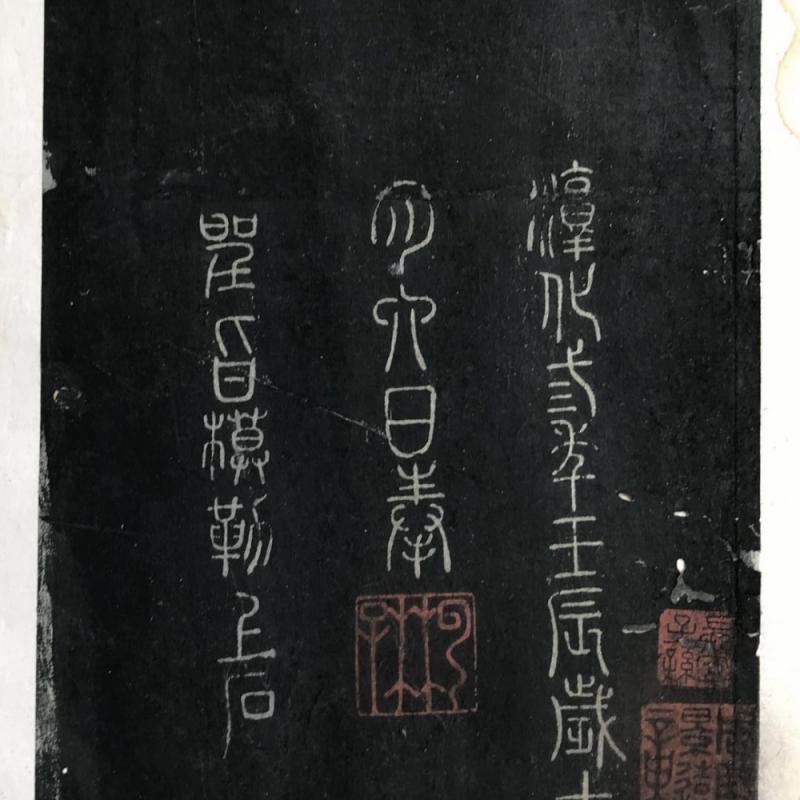 淳化弎年壬辰歲十
月六日奉
聖旨模勒上石